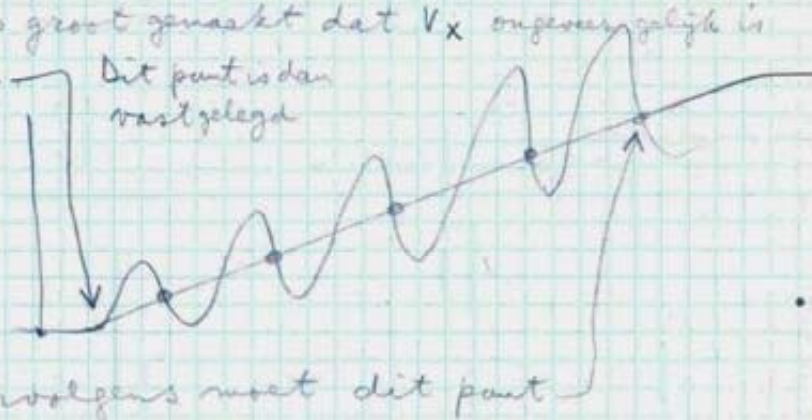 groot gemaakt dat Vx ongeveer gelijk is
Dit punt is dan
vastgelegd
volgens moet dit punt